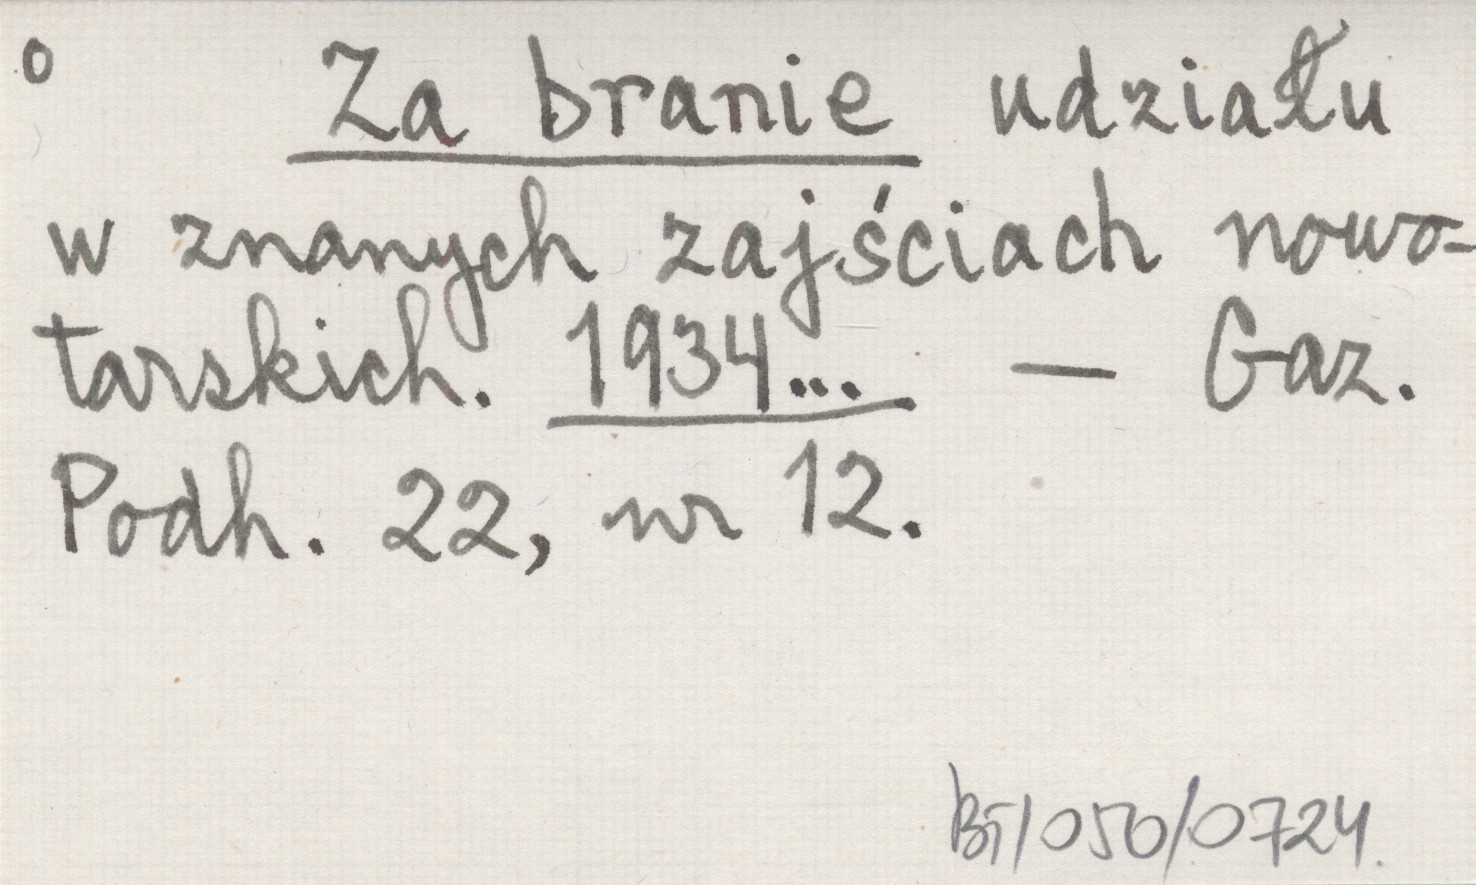 o Za branie udziału
w znanych zajściach nowo-
tarskich. 1934... — Gaz.
Podh. 22, nr 12.
BT/050/0724.